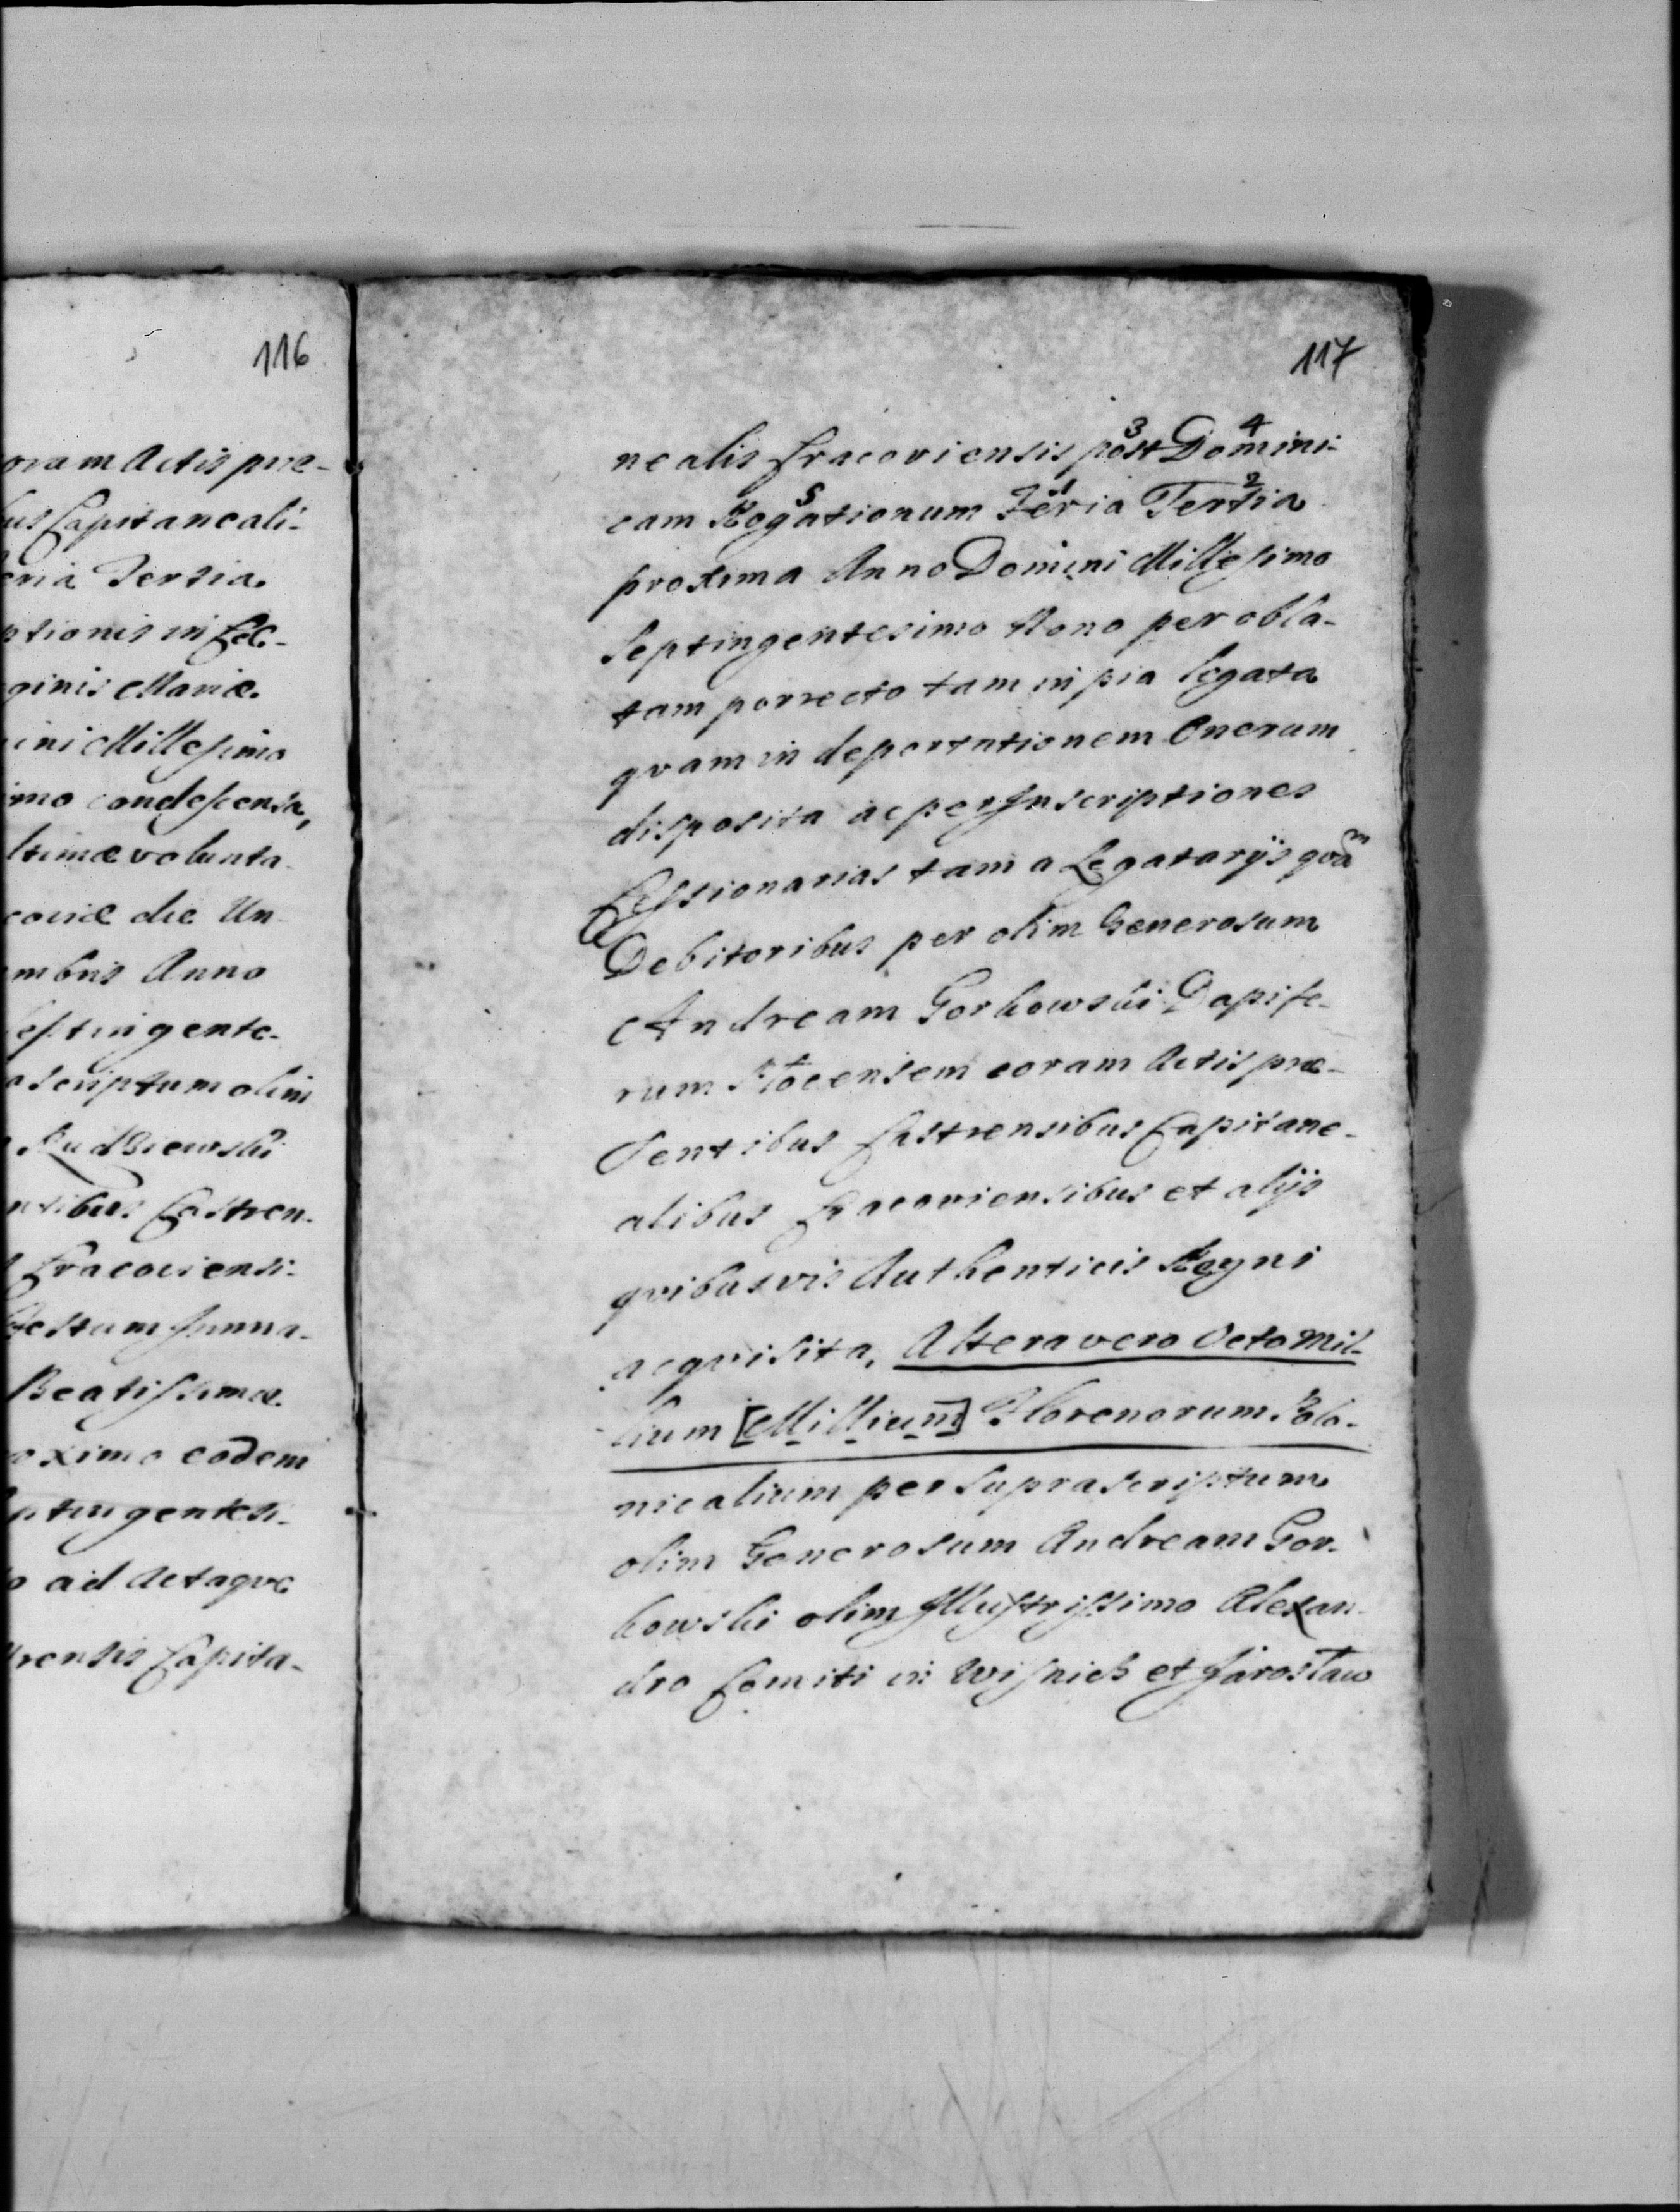 116
oram Actis prae-
bus Capitaneali-
eria Tertia
ptionis in Ecc-
ginis Mariæ
ini Millesimo
imo condescensa,
ltimæ volunta-
coviæ die Un-
mbris Anno
septingente-
scriptum olim
Rudkiewski
nsibus Castren-
Cracoviensi-
festum Imma-
Beatissimæ
oximo eodem
ptingentesi-
ad Actaque
trensis Capita-
117
nealis Cracoviensis post 3 Domini- 4
cam Rogationum 5 Feria 1 Tertia 2
proxima Anno Domini Millesimo
Septingentesimo Nono per obla-
tam porrecto tam in pia legata
quam in deportationem Onerum
disposita ac per Inscriptiones
Cessionarias tam a Legatarijs quam
a Debitoribus per olim Generosum
Andream Gorkowski Dapife-
rum Plocensem coram Actis præ-
sentibus Castrensibus Capitane-
alibus Cracoviensibus et alijs
quibusvis Authenticis Regni
acquisita, Altera vero Octo Mil-
lium [Millium] Florenorum Polo-
nicalium per suprascriptum
olim Generosum Andream Gor-
kowski olim Illustrissimo Alexan-
dro Comiti in Wisnicz et Jarosław